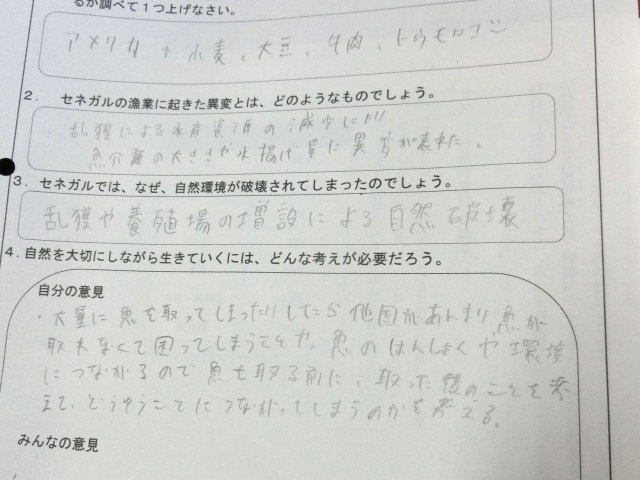 るか調べて1つ上げなさい。
アメリカ→小麦、大豆、牛肉、トウモロコシ
2. セネガルの漁業に起きた異変とは、どのようなものでしょう。
・乱獲による水産資源の減少により
魚介類の大きさや水揚げ量に異変が表れた。
3. セネガルでは、なぜ、自然環境が破壊されてしまったのでしょう。
乱獲や養殖場の増設による自然破壊
4. 自然を大切にしながら生きていくには、どんな考えが必要だろう。
自分の意見
・大量に魚を取ってしまったりしたら他国があんまり魚が
取れなくて困ってしまうことや、魚のはんしょくや環境
につながるので魚を取る前に、取った後のことを考
えて、どうゆうことにつながってしまうのかを考える。
みんなの意見